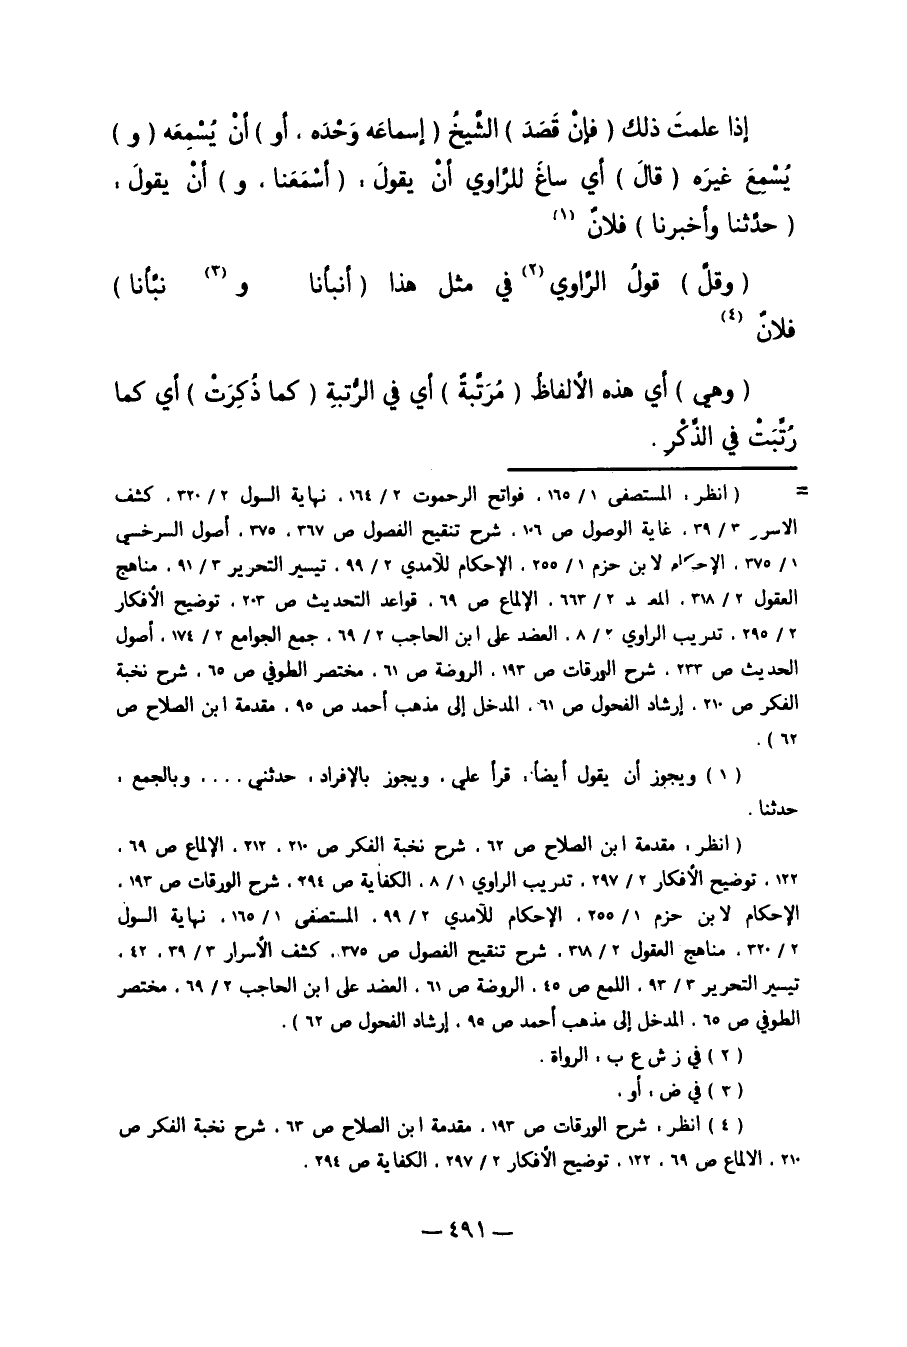 إذا علمتَ ذلك ( فإنْ قَصَدَ ) الشَّيخُ ( إسماعَه وَحْدَه ، أو ) أنْ يُسْمِعَه ( و )
يُسْمِعَ غيرَه ( قالَ ) أي ساغَ للرَّاوي أنْ يقولَ : ( أسْمَعَنا ، و ) أنْ يقولَ :
( حدَّثنا وأخبرنا ) فلانٌ (١)
( وقلَّ ) قولُ الرَّاوي (٢) في مثل هذا ( أنبأنا و (٣) نبَّأنا )
فلانٌ (٤)
( وهي ) أي هذه الألفاظُ ( مُرَتَّبةٌ ) أي في الرُّتبةِ ( كما ذُكِرَتْ ) أي كما
رُتِّبَتْ في الذِّكْرِ .
= ( انظر : المستصفى ١ / ١٦٥ ، فواتح الرحموت ٢ / ١٦٤ ، نهاية السول ٢ / ٣٢٠ ، كشف
الاسرر ٣ / ٣٩ ، غاية الوصول ص ١٠٦ ، شرح تنقيح الفصول ص ٣٦٧ ، ٣٧٥ ، أصول السرخسي
١ / ٣٧٥ ، الإحكام لابن حزم ١ / ٢٥٥ ، الإحكام للآمدي ٢ / ٩٩ ، تيسير التحرير ٣ / ٩١ ، مناهج
العقول ٢ / ٣١٨ ، ٢ / ٦٦٣ ، الإلماع ص ٦٩ ، قواعد التحديث ص ٢٠٣ ، توضيح الأفكار
٢ / ٢٩٥ ، تدريب الراوي ٢ / ٨ ، العضد على ابن الحاجب ٢ / ٦٩ ، جمع الجوامع ٢ / ١٧٤ ، أصول
الحديث ص ٢٣٣ ، شرح الورقات ص ١٩٣ ، الروضة ص ٦١ ، مختصر الطوفي ص ٦٥ ، شرح نخبة
الفكر ص ٢١٠ ، إرشاد الفحول ص ٦١ ، المدخل إلى مذهب أحمد ص ٩٥ ، مقدمة ابن الصلاح ص
٦٢ ) .
( ١ ) ويجوز أن يقول أيضاً : قرأ علي ، ويجوز بالإفراد : حدثني .... وبالجمع :
حدثنا .
( انظر : مقدمة ابن الصلاح ص ٦٢ ، شرح نخبة الفكر ص ٢١٠ ، ٢١٢ ، الإلماع ص ٦٩ ،
١٢٢ ، توضيح الأفكار ٢ / ٢٩٧ ، تدريب الراوي ١ / ٨ ، الكفاية ص ٢٩٤ ، شرح الورقات ص ١٩٣ ،
الإحكام لابن حزم ١ / ٢٥٥ ، الإحكام للآمدي ٢ / ٩٩ ، المستصفى ١ / ١٦٥ ، نهاية السول
٢ / ٣٢٠ ، مناهج العقول ٢ / ٣١٨ ، شرح تنقيح الفصول ص ٣٧٥ ، كشف الأسرار ٣ / ٣٩ ، ٤٢ ،
تيسير التحرير ٣ / ٩٣ ، اللمع ص ٤٥ ، الروضة ص ٦١ ، العضد على ابن الحاجب ٢ / ٦٩ ، مختصر
الطوفي ص ٦٥ ، المدخل إلى مذهب أحمد ص ٩٥ ، إرشاد الفحول ص ٦٢ ) .
( ٢ ) في ز ش ع ب : الرواة .
( ٣ ) في ض : أو .
( ٤ ) انظر : شرح الورقات ص ١٩٣ ، مقدمة ابن الصلاح ص ٦٣ ، شرح نخبة الفكر ص
٢١٠ ، الالماع ص ٦٩ ، ١٢٢ ، توضيح الأفكار ٢ / ٢٩٧ ، الكفاية ص ٢٩٤ .
— ٤٩١ —